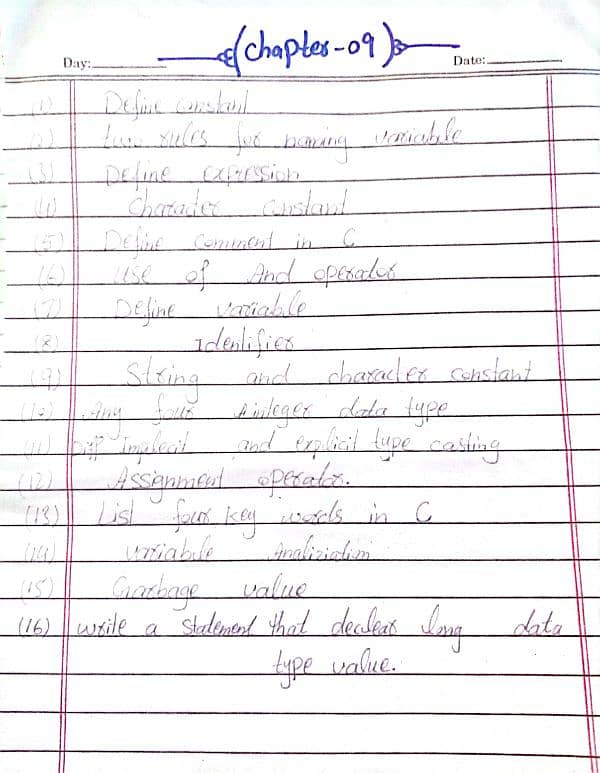 Chapter-09
Day:
Date:
(1) Define constant
(2) two rules for naming variable
(3) Define expression
(4) Character constant
(5) Define comment in C
(6) use of And operator
(7) Define variable
(8) Identifier
(9) String and character constant
(10) Any four integer data type
(11) Diff implecit and explicit type casting
(12) Assignment operator.
(13) List four key words in C
(14) variable
(15) Garbage value
(16) write a statement that declear long data
type value.